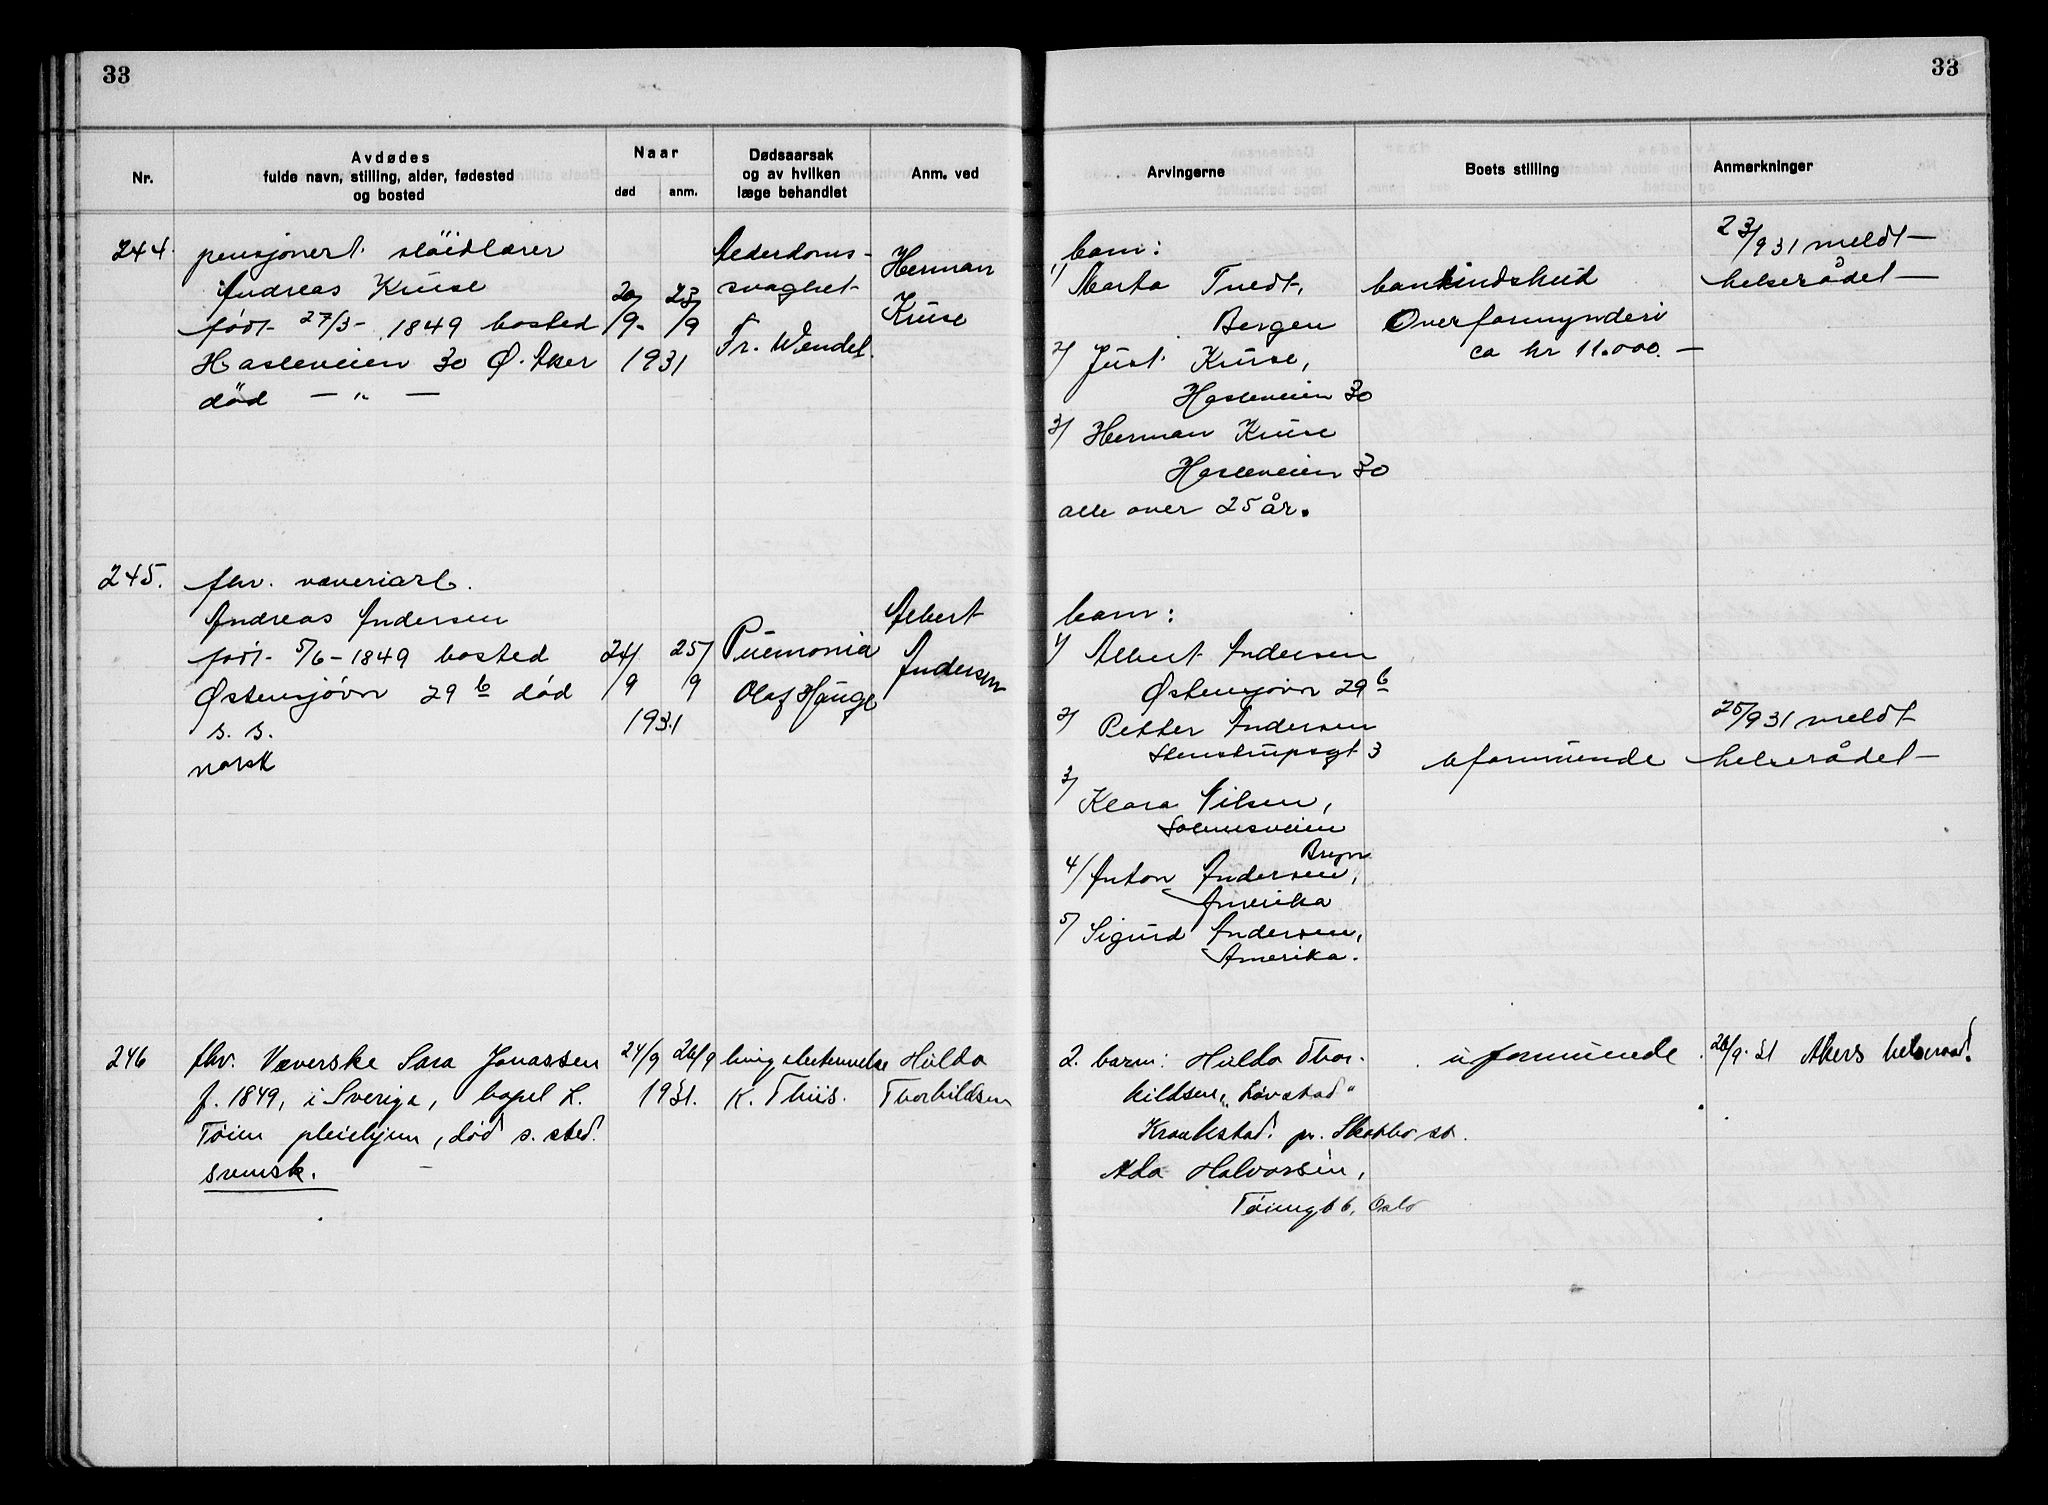 33
33
Nr.
Avdødes
fulde navn, stilling, alder, fødested
og bosted
Naar
død
anm.
Dødsaarsak
og av hvilken
læge behandlet
Anm. ved
Arvingerne
Boets stilling
Anmerkninger
244.
pensjonert slöidlærer
Andreas Kruse
født 27/3- 1849 bosted
Hasleveien 30 Ø. Aker
død — „ —
20/9-
23/9
1931
Alderdoms-
svaghet
Fr. Wendel.
Herman
Kruse
barn:
1) Marta Tvedt,
Bergen
2) Just Kruse,
Hasleveien 30
3) Herman Kruse
Hasleveien 30
alle over 25 år.
bankindskud
Overformynderi
ca kr 11.000.—
23/9 31 meldt
helserådet
245.
fhv. væveriarb.
Andreas Andersen
født 5/6-1849 bosted
Østensjövn 29 b død
s. s.
norsk
24/9
25/9
1931
Pnemonia
Olaf Hauge
Albert
Andersen
barn:
1) Albert Andersen
Østensjovn 29 b
2) Petter Andersen
Stenstrupsgt 3
3) Klara Nilsen,
Solnusveien
Bryn
4) Anton Andersen,
Amerika
5) Sigurd Andersen,
Amerika.
uformuende
25/9 31 meldt
helserådet
246
fhv. Væverske Sara Jonassen
f. 1849, i Sverige, bopel L.
Töien pleiehjem, død s. sted.
svensk.
24/9 26/9
1931.
lungebetennelse
K. Thiis.
Hulda
Thorkildsen
2. barn: Hulda Thor-
kildsen, „Løvstad"
Kraakstad. pr. Skotbo st.
Ada Halvorsen,
Töiengt 6, Oslo
uformuende
26/9. 31 Akers helseraad.